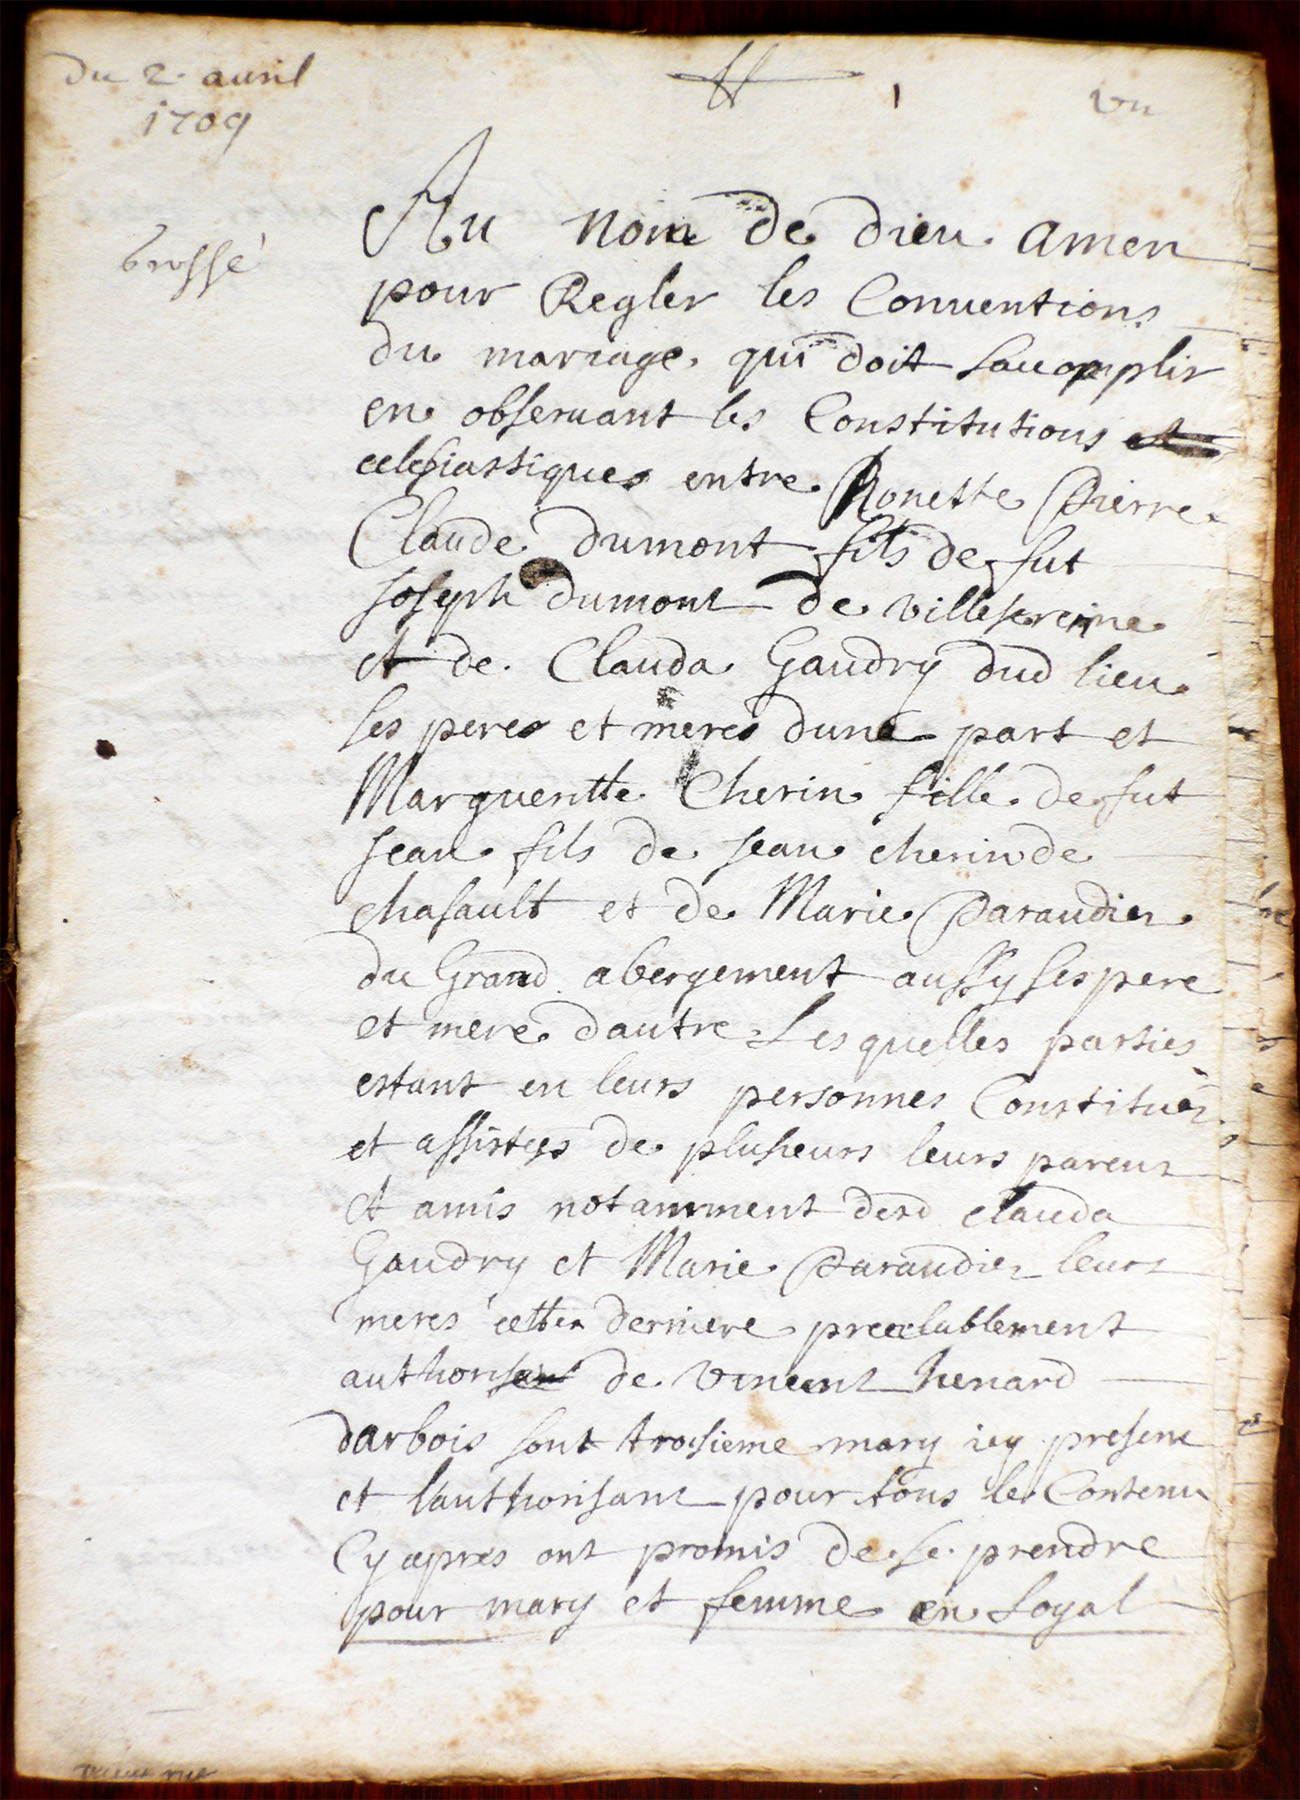 Du 2. auril
1709
vu
Grossé
Au Nom de Dieu amen
pour Regler les Conuentions
du mariage qui doit saucomplir
en obseruant les Constitutions et
eclesiastiques entre Honette Pierre
Claude dumont fils de fut
Joseph dumont de villesereine
et de Clauda Gaudry dud lieu
ses peres et meres dune part et
Margueritte Cherin fille de fut
Jean fils de Jean cherin de
chasault et de Marie Paraudier
du Grand abergement aussy ses pere
et mere dautre Lesquelles parties
estant en leurs personnes Constitueés
et assisteés de plusieurs leurs parent
et amis notamment desd clauda
Gaudry et Marie Paraudier leurs
meres cette derniere prealablement
authorisant de vincent henard
darbois sont troisieme mary icy present
et lauthorisant pour tous le Contenu
Cy apres ont promis de se prendre
pour mary et femme en Loyal